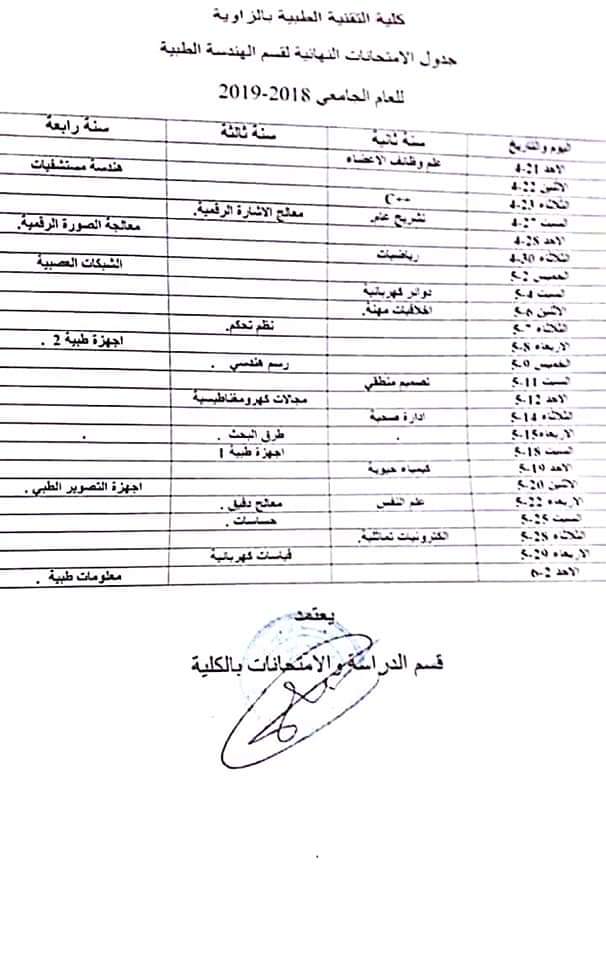 كلية التقنية الطبية بالزاوية
جدول الامتحانات النهائية لقسم الهندسة الطبية
للعام الجامعي 2018-2019
اليوم والتاريخ سنة ثانية سنة ثالثة سنة رابعة
الاحد 21-4 علم وظائف الاعضاء هندسة مستشفيات
الاثنين 22-4
الثلاثاء 23-4 C++
السبت 27-4 تشريح عام معالج الاشارة الرقمية. معالجة الصورة الرقمية.
الاحد 28-4
الثلاثاء 30-4 رياضيات الشبكات العصبية
الخميس 2-5
السبت 4-5 دوائر كهربائية
الاثنين 6-5 اخلاقيات مهنة.
الثلاثاء 7-5 نظم تحكم.
الاربعاء 8-5 اجهزة طبية 2 .
الخميس 9-5 رسم هندسي .
السبت 11-5 تصميم منطقي
الاحد 12-5 مجالات كهرومغناطيسية
الثلاثاء 14-5 ادارة صحية
الاربعاء 15-5 . طرق البحث . .
السبت 18-5 اجهزة طبية 1
الاحد 19-5 كيمياء حيوية
الاثنين 20-5 اجهزة التصوير الطبي .
الاربعاء 22-5 علم النفس معالج دقيق .
السبت 25-5 حساسات .
الثلاثاء 28-5 الكترونيات تماثلية.
الاربعاء 29-5 قياسات كهربائية
الاحد 2-6 معلومات طبية .
يعتمد
قسم الدراسة والامتحانات بالكلية